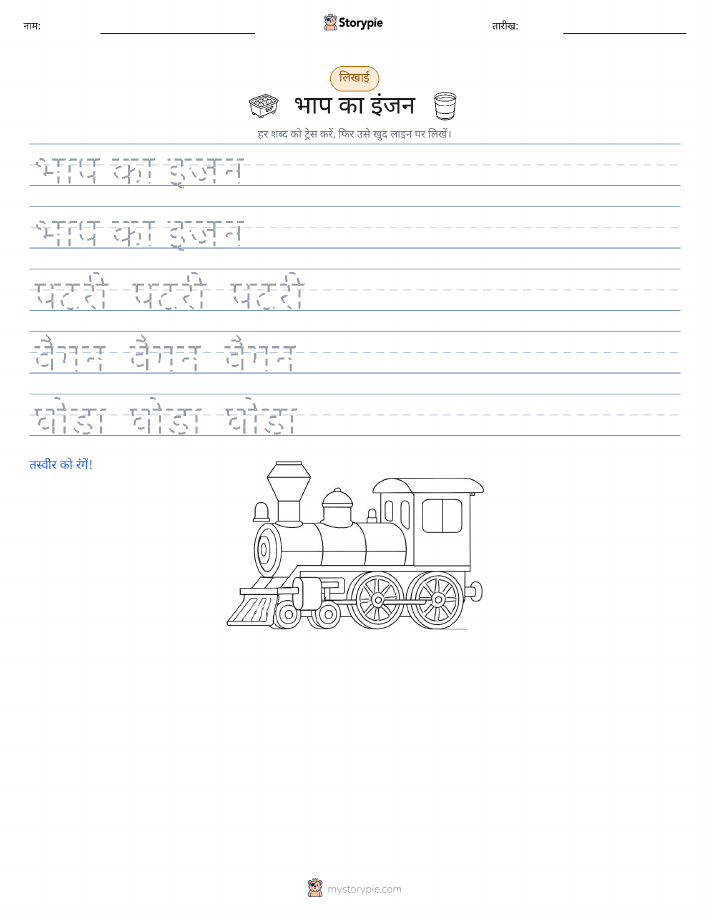 नाम:
Storypie
तारीख:
लिखाई
भाप का इंजन
हर शब्द को ट्रेस करें, फिर उसे खुद लाइन पर लिखें।
भाप का इंजन
भाप का इंजन
पटरी पटरी पटरी
वैगन वैगन वैगन
घोड़ा घोड़ा घोड़ा
तस्वीर को रंगें!
mystorypie.com